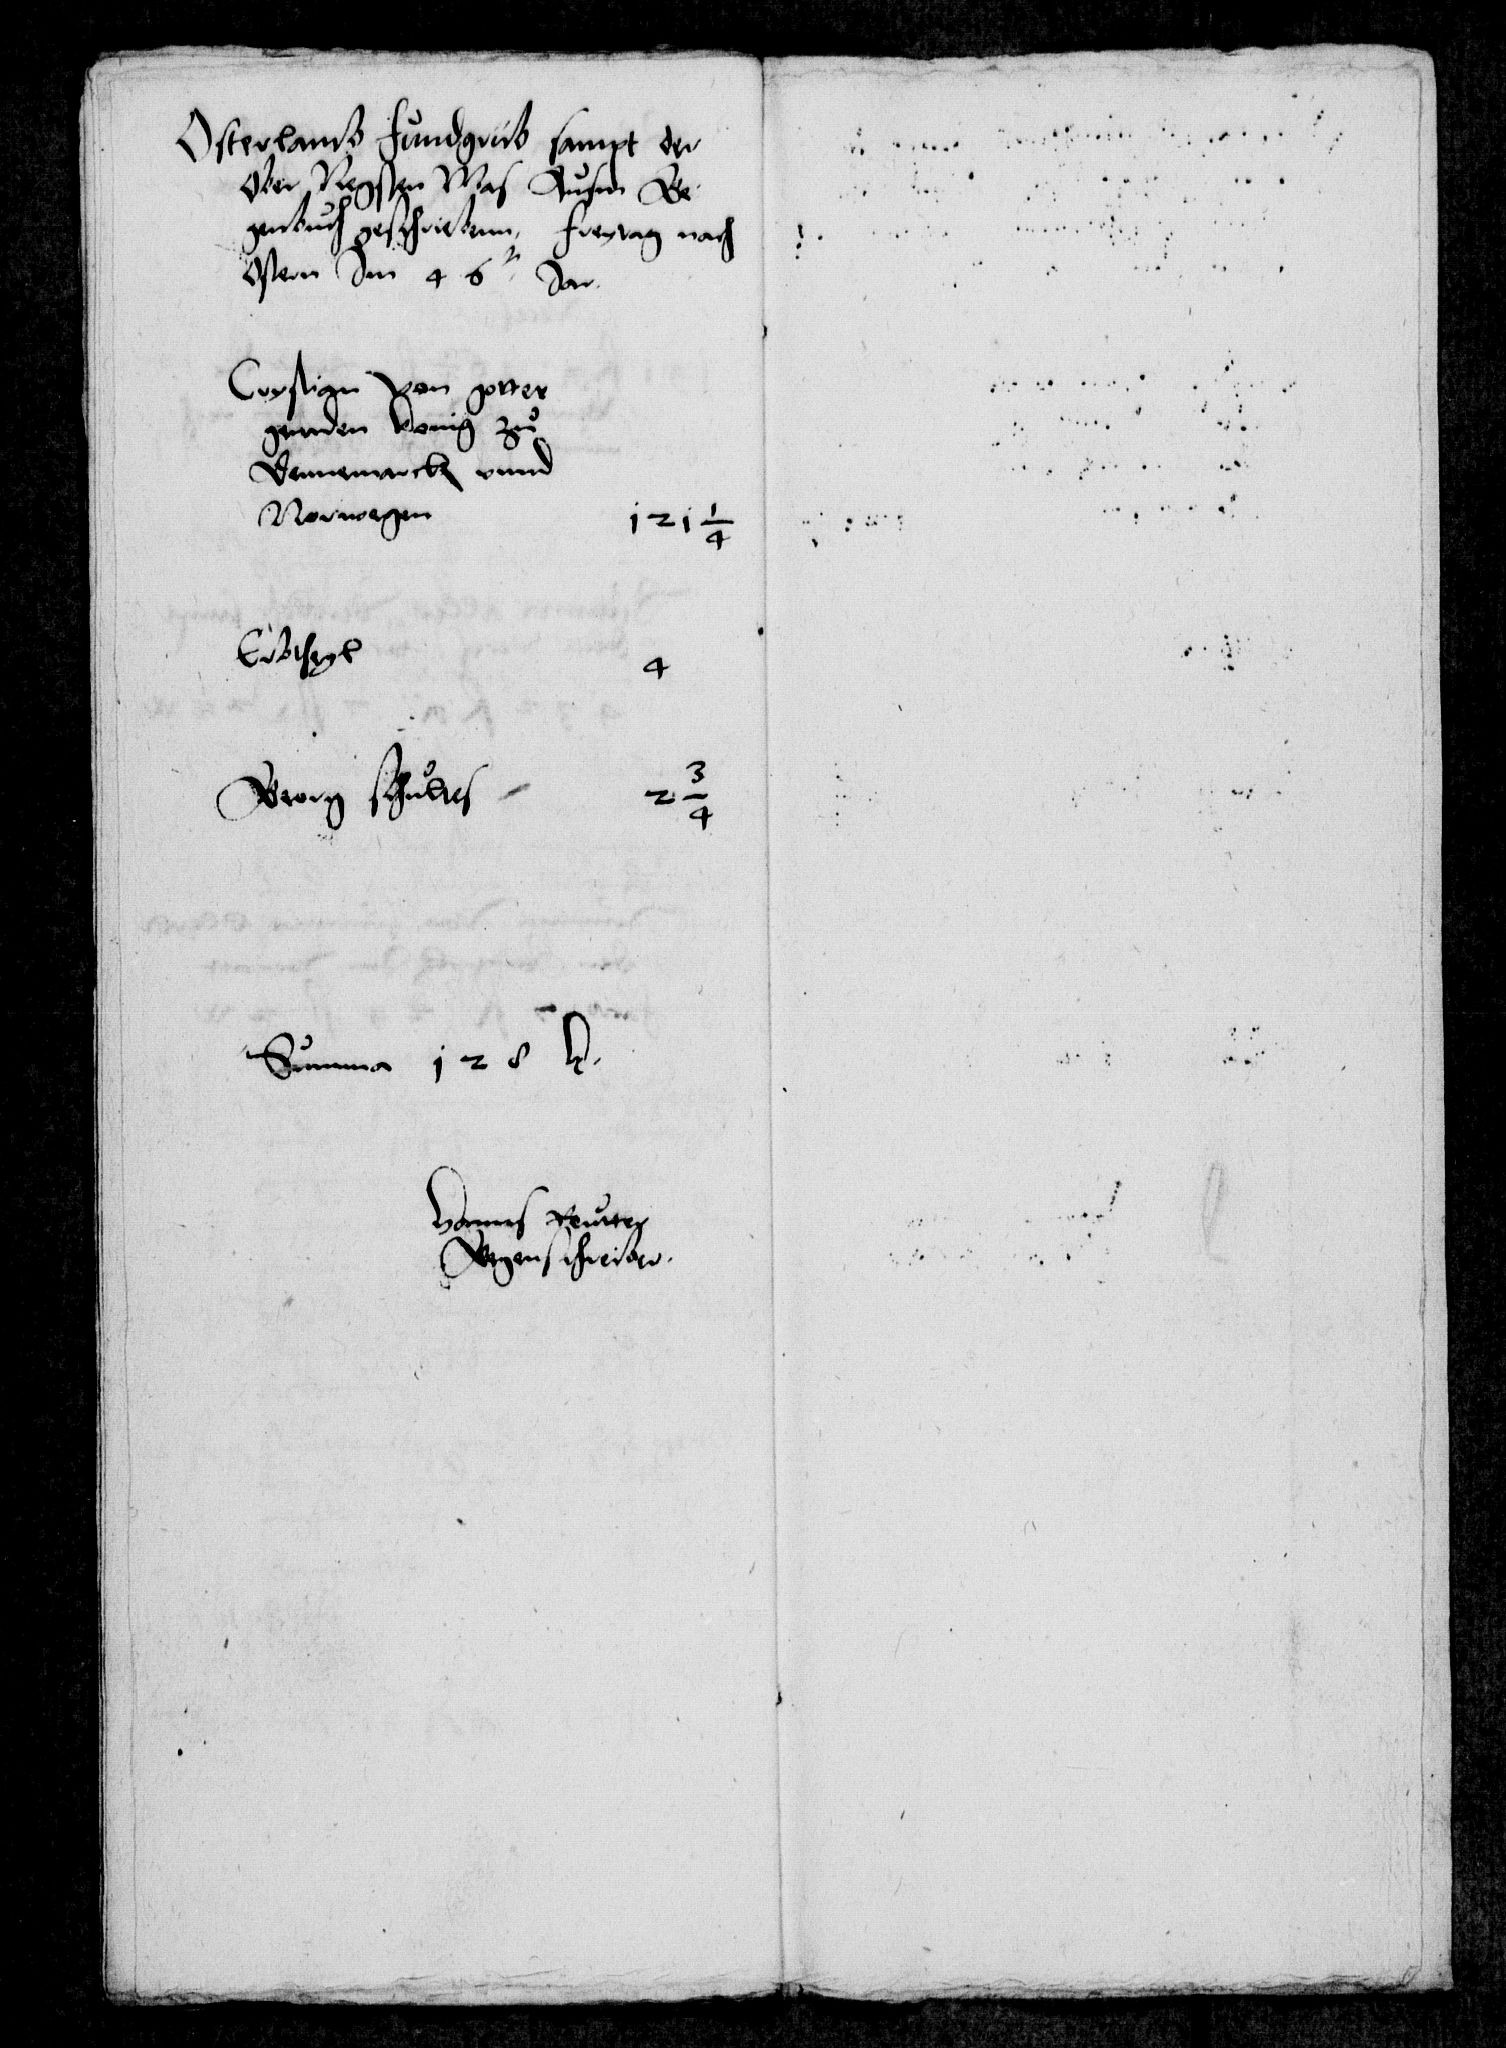 Osterlamb fundgrub sampt der
Ober Negsten Mas Ausm Ge,
genbuch geschriebenn, freytag nach
Ostern Im 46 Jar.
Crystian von gottes
genaden konig zu
Dennemarck vnnd
Norwegen 121 1/4
Erbtheyl 4
Georg schultes 2 3/4
Summa 128 k.
Hanns Reutter
Gegenschreiber.